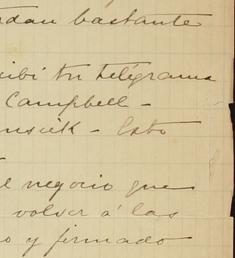 dan bastante
cibi tu telégrama
Campbell -
nscik - Esto
el negocio que
volver á las
o y firmado